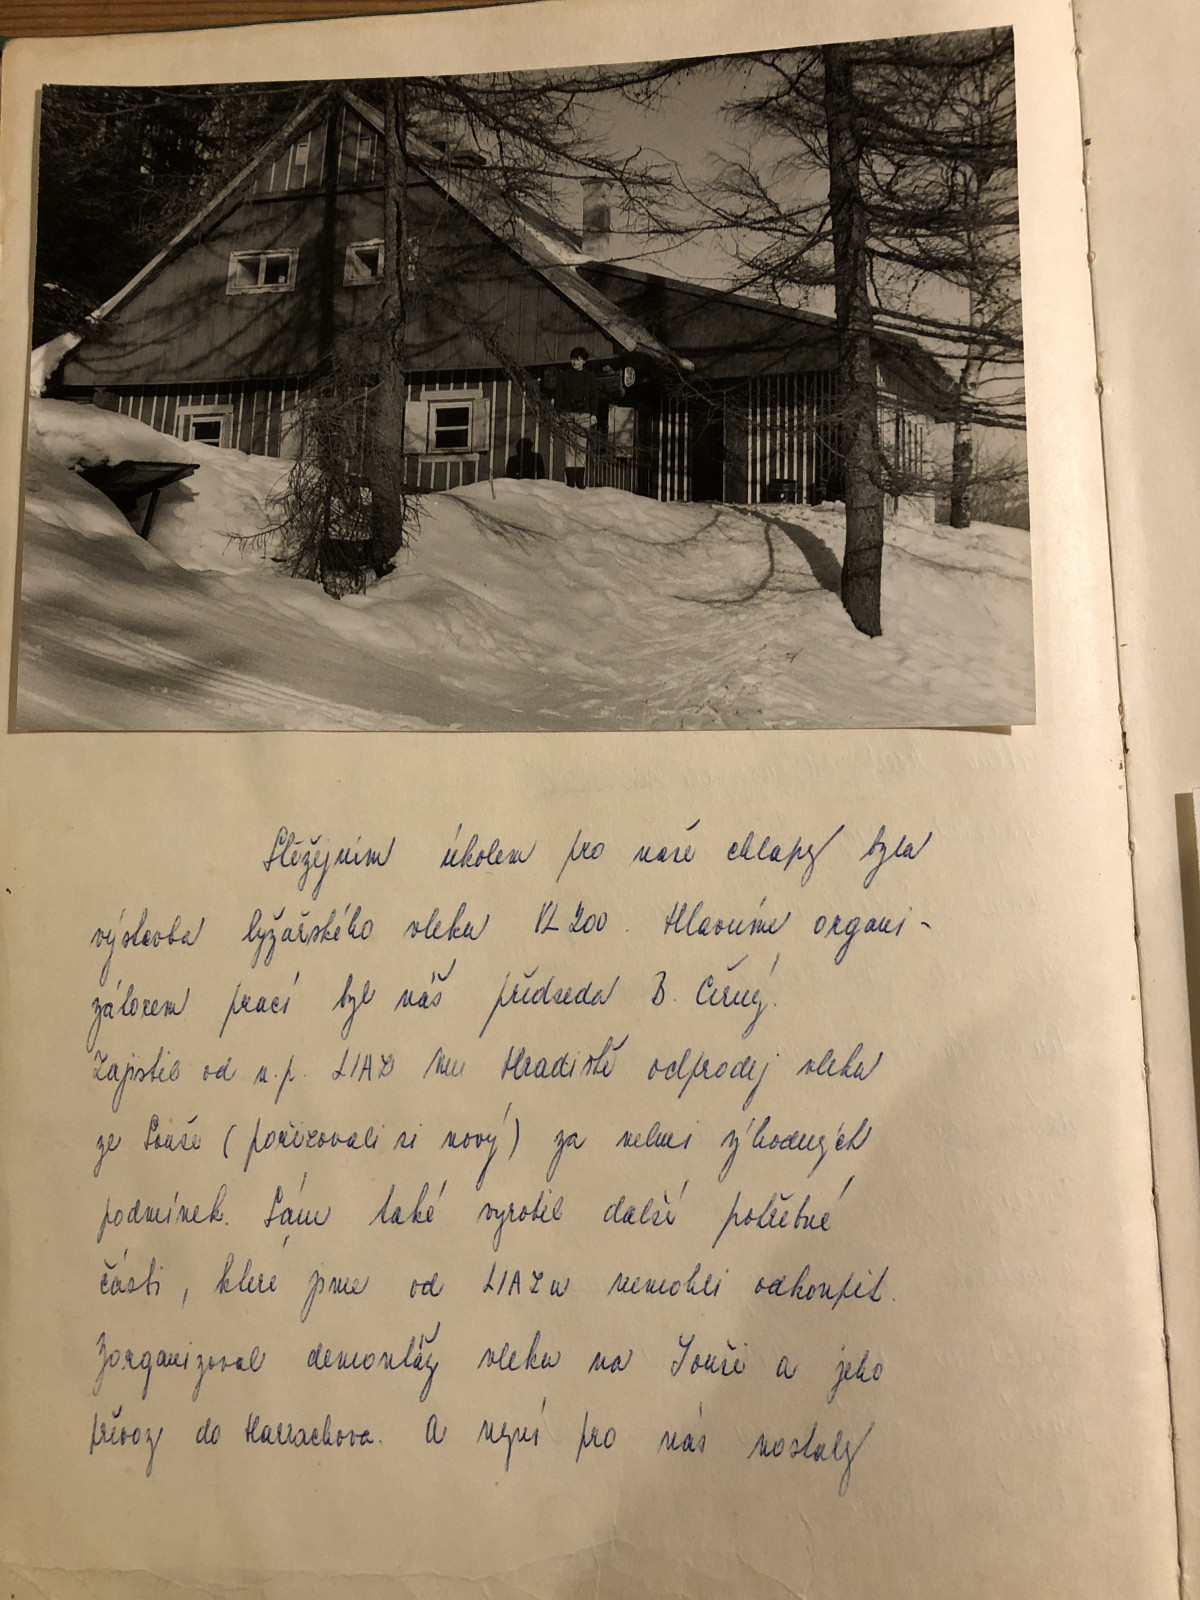 Stěžejním úkolem pro naše chlapy byla
výstavba lyžařského vleku VL 200. Hlavním organi-
zátorem prací byl náš předseda B. Černý.
Zajistil od n.p. LIAZ Mn Hradiště odprodej vleku
ze Souše (pořizovali si nový) za velmi výhodných
podmínek. Sám také vyrobil další potřebné
části, které jsme od LIAZu nemohli odkoupit.
Zorganizoval demontáž vleku na Souši a jeho
převoz do Harrachova. A nyní pro nás nastaly